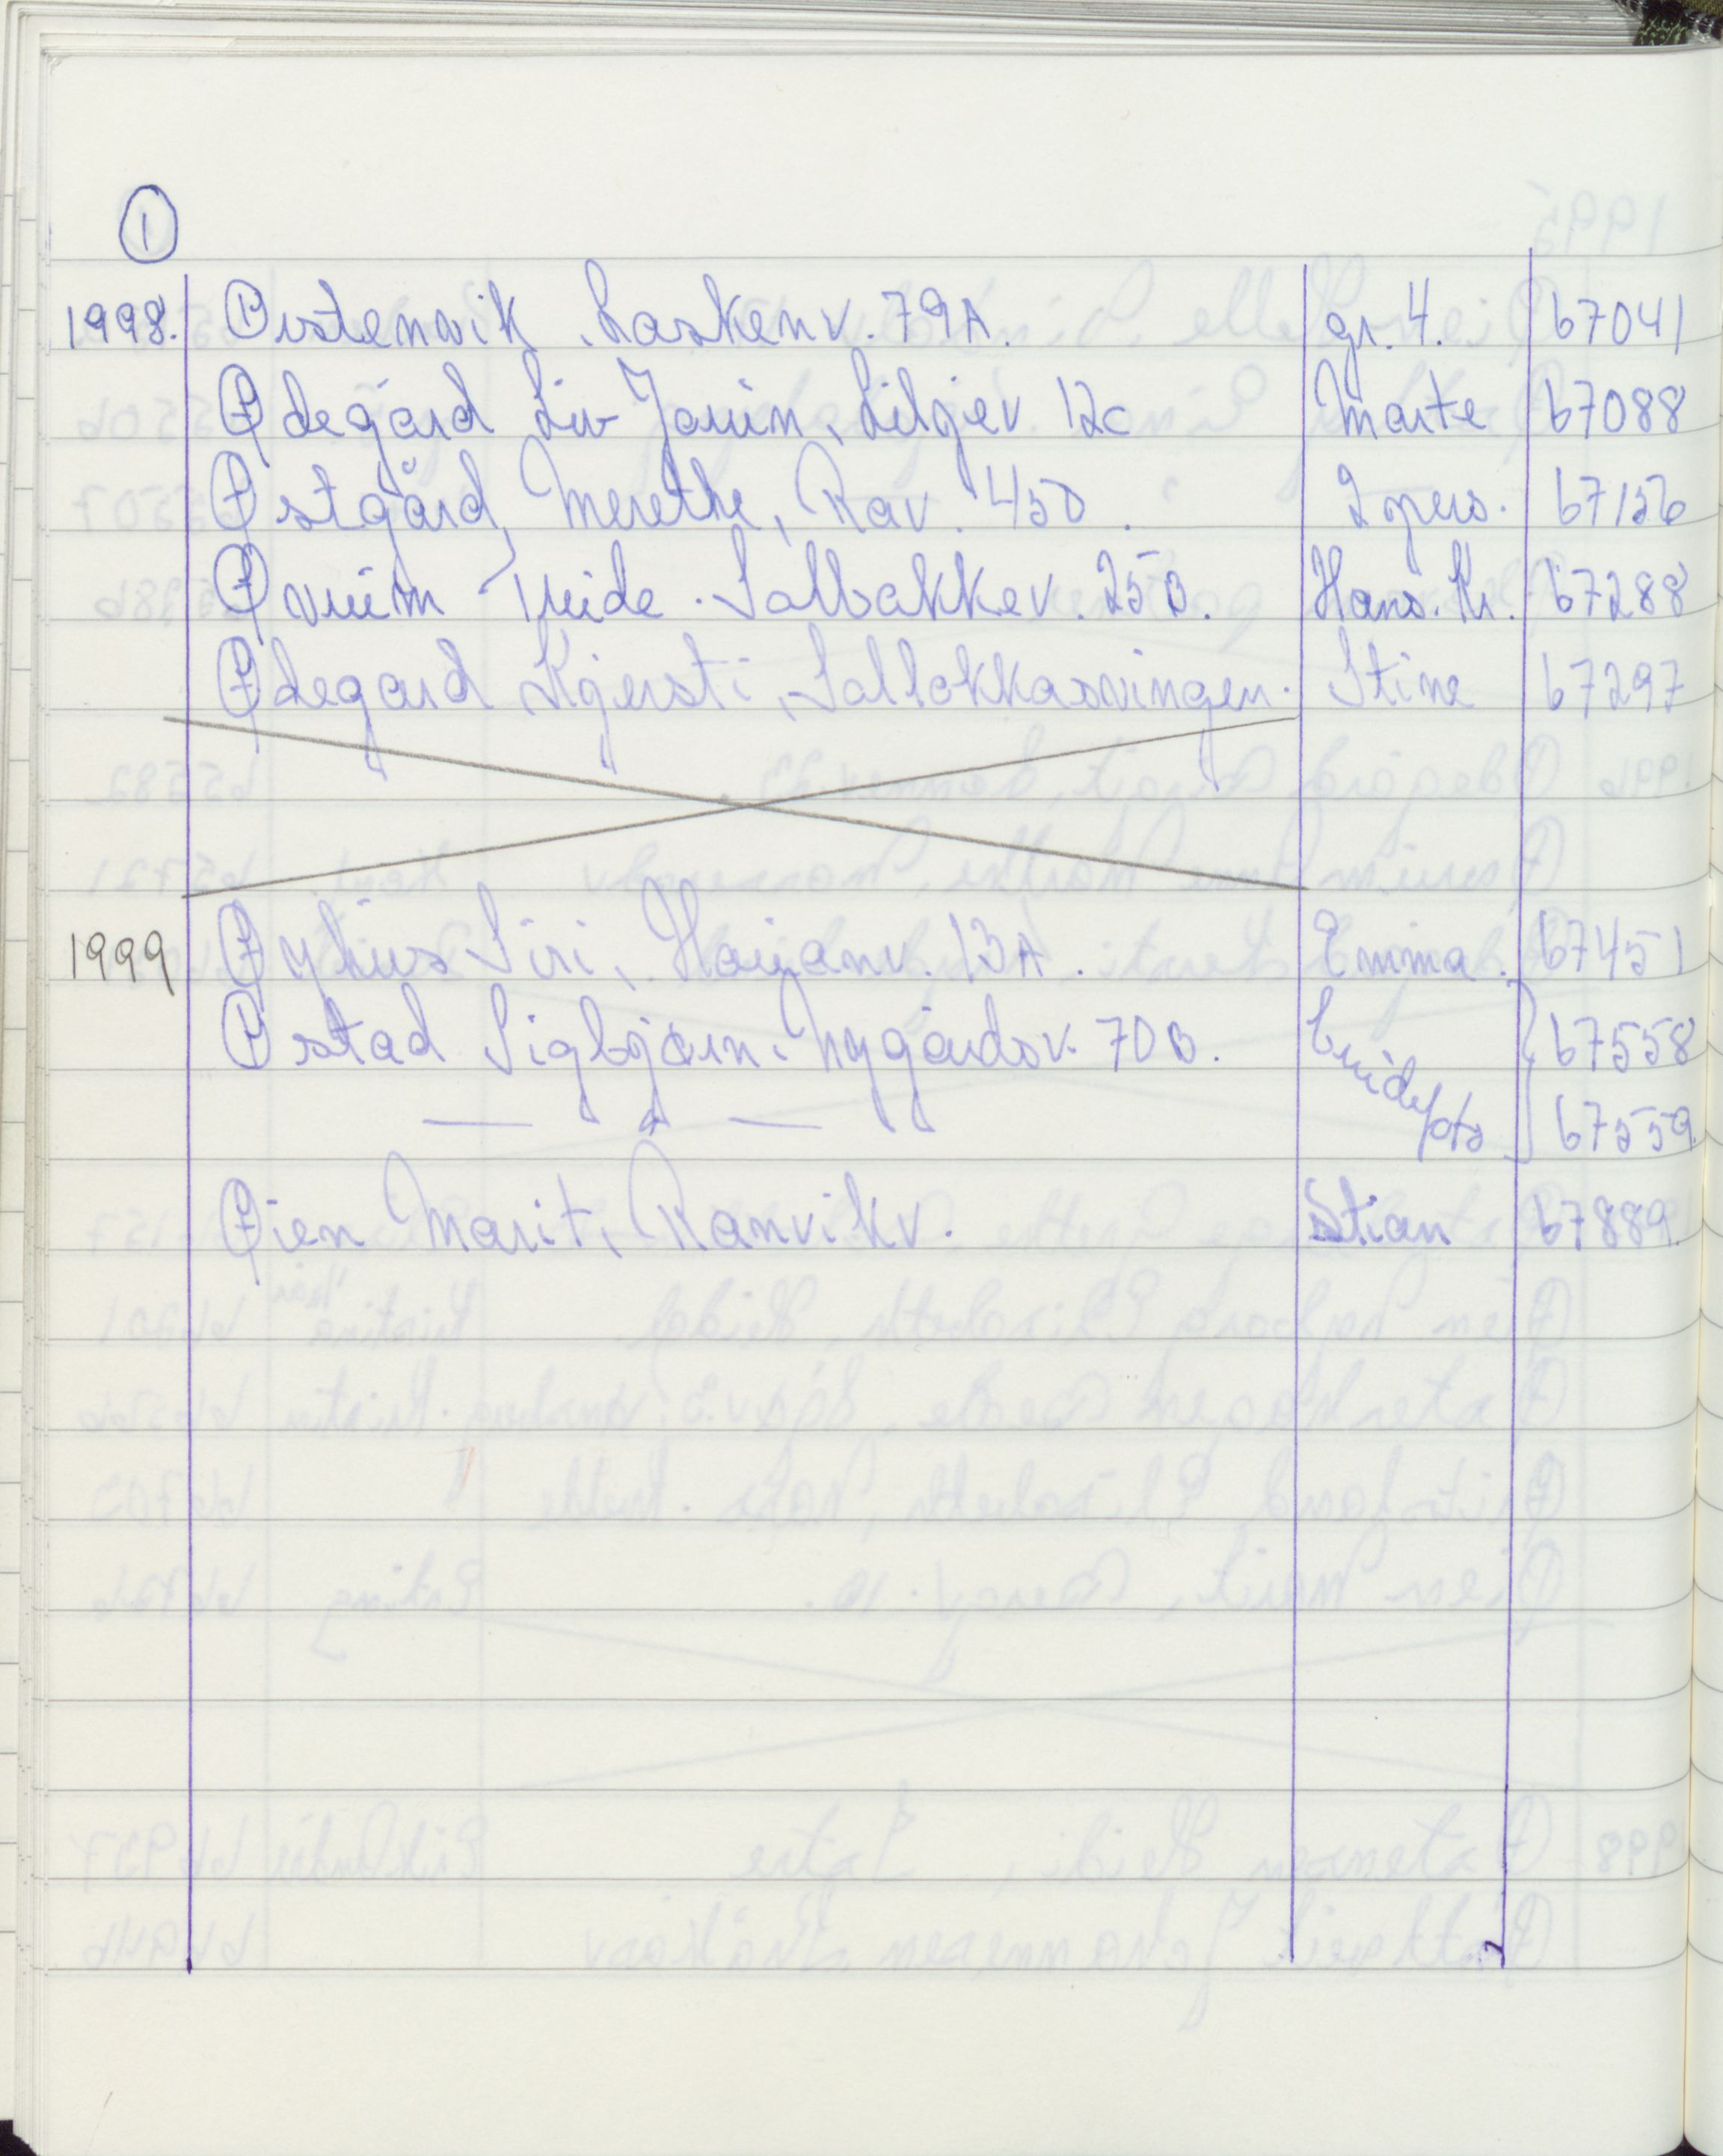 ①
1998. Østenvik, Laskenv. 79A. gr. 4. 67041
Ødegård Liv Jorun, Liljev 12c Marte 67088
Østgård, Merethe, Rav. 45D. 2 pers. 67156
Øvrum Wide. Solbakkev. 25B. Hans. Kr. 67288
Ødegård Kjersti, Solløkkasvingen. Stine 67297
1999 Øyhus Siri, Haujanv. 13A. Emma. 67451
Østad Sigbjørn, Nygårdsv. 70B. 67558
— " — 67559
Øien Marit, Ranvikv. Stian 67889.